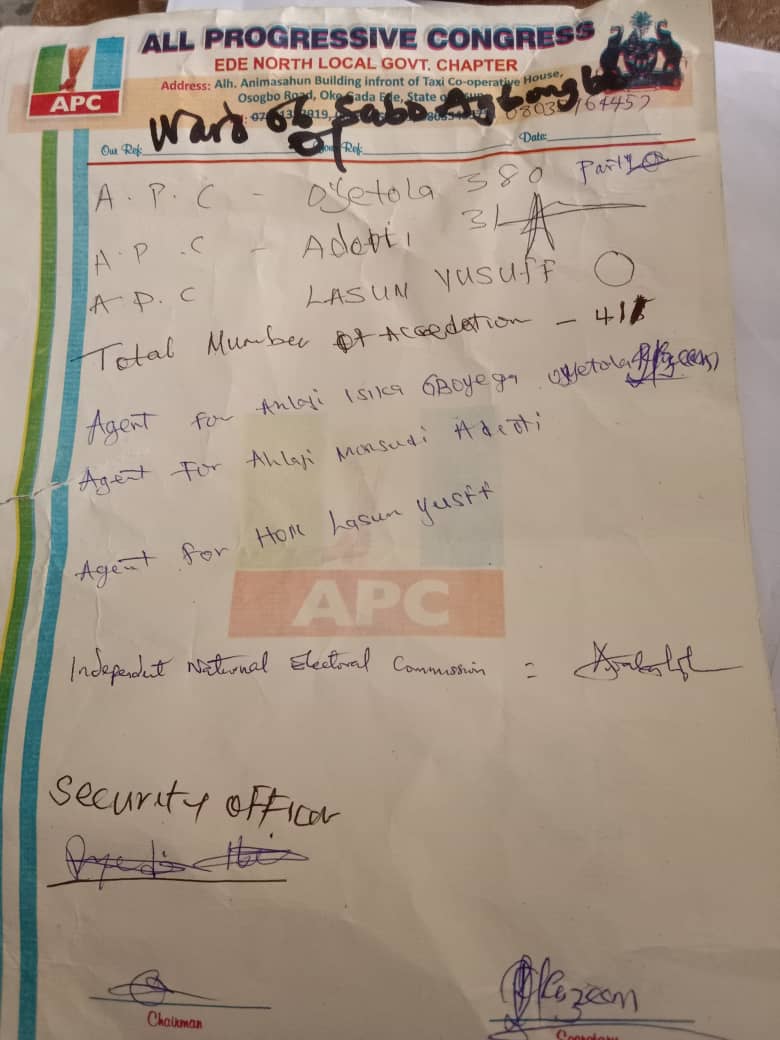 ALL PROGRESSIVE CONGRESS
EDE NORTH LOCAL GOVT. CHAPTER
APC
Address: Alh. Animasahun Building infront of Taxi Co-operative House,
Osogbo Road, Oke Gada Ede, State
Ward 06 Sabo
Our Ref: Ref: Date:
A.P.C - Oyetola 380 Party
A.P.C - Adeoti 31
A.P.C LASUN YUSUFF O
Total Number Of Accredation - 411
Agent for Ahlaji Isika GBoyega oyetola
Agent For Ahlaji Monsudi Adeoti
Agent for HON Lasun Yusff
APC
Independent National Electoral Commission =
Security officer
Kazeem
Chairman Secretary